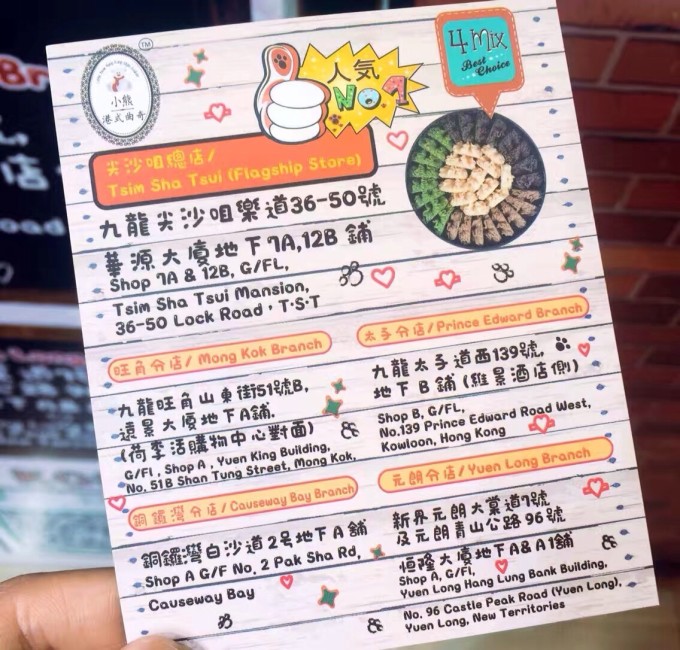 TM
小熊
港式曲奇
人気
NO.1
4 Mix
Best
Choice
尖沙咀總店/
Tsim Sha Tsui (Flagship Store)
九龍尖沙咀樂道36-50號
華源大廈地下7A,12B 鋪
Shop 7A & 12B, G/FL,
Tsim Sha Tsui Mansion,
36-50 Lock Road, T·S·T
旺角分店/ Mong Kok Branch
九龍旺角山東街51號B,
遠景大廈地下A鋪.
(荷李活購物中心對面)
G/Fl, Shop A, Yuen King Building,
No. 51B Shan Tung Street, Mong Kok,
太子分店/Prince Edward Branch
九龍太子道西139號,
地下 B 鋪 (維景酒店側)
Shop B, G/FL,
No.139 Prince Edward Road West,
Kowloon, Hong Kong
銅鑼灣分店/ Causeway Bay Branch
銅鑼灣白沙道2號地下A鋪
Shop A G/F No. 2 Pak Sha Rd,
Causeway Bay
元朗分店/Yuen Long Branch
新界元朗大棠道7號
及元朗青山公路 96號
恒隆大廈地下A&A1鋪
Shop A, G/Fl,
Yuen Long Hang Lung Bank Building,
No. 96 Castle Peak Road (Yuen Long),
Yuen Long, New Territories